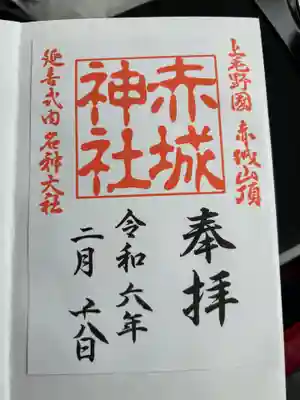 上毛野國 赤城山頂
赤城
神社
奉拝
令和六年
二月 十八日
延喜式内 名神大社